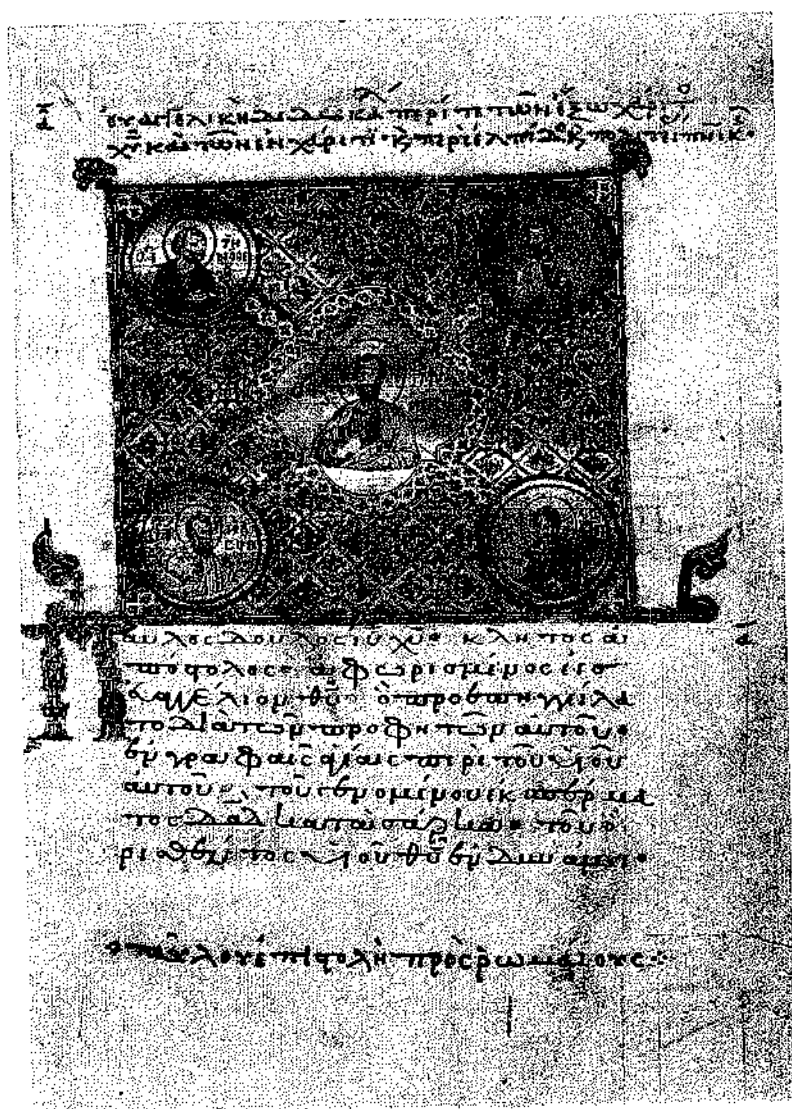 εὐαγγελικὴ διδασκα περί τε τῶν ἔξω
χῦ καὶ τῶν ἐν χάριτι· καὶ περὶ ἐλπίδος καὶ
Παῦλος δοῦλος ιῦ χῦ· κλητὸς ἀ
πόστολος· ἀφωρισμένος εἰς
εὐαγγέλιον θῦ· ὃ προεπηγγείλα
το διὰ τῶν προφητῶν αὐτοῦ·
ἐν γραφαῖς ἁγίαις περὶ τοῦ υἱοῦ
αὐτοῦ· τοῦ γενομένου ἐκ σπέρμα
τος δᾱδ κατὰ σάρκα· τοῦ ὁ
ρισθέντος υἱοῦ θῦ ἐν δυνάμει·
παύλου ἐπιστολὴ πρὸς ῥωμαίους